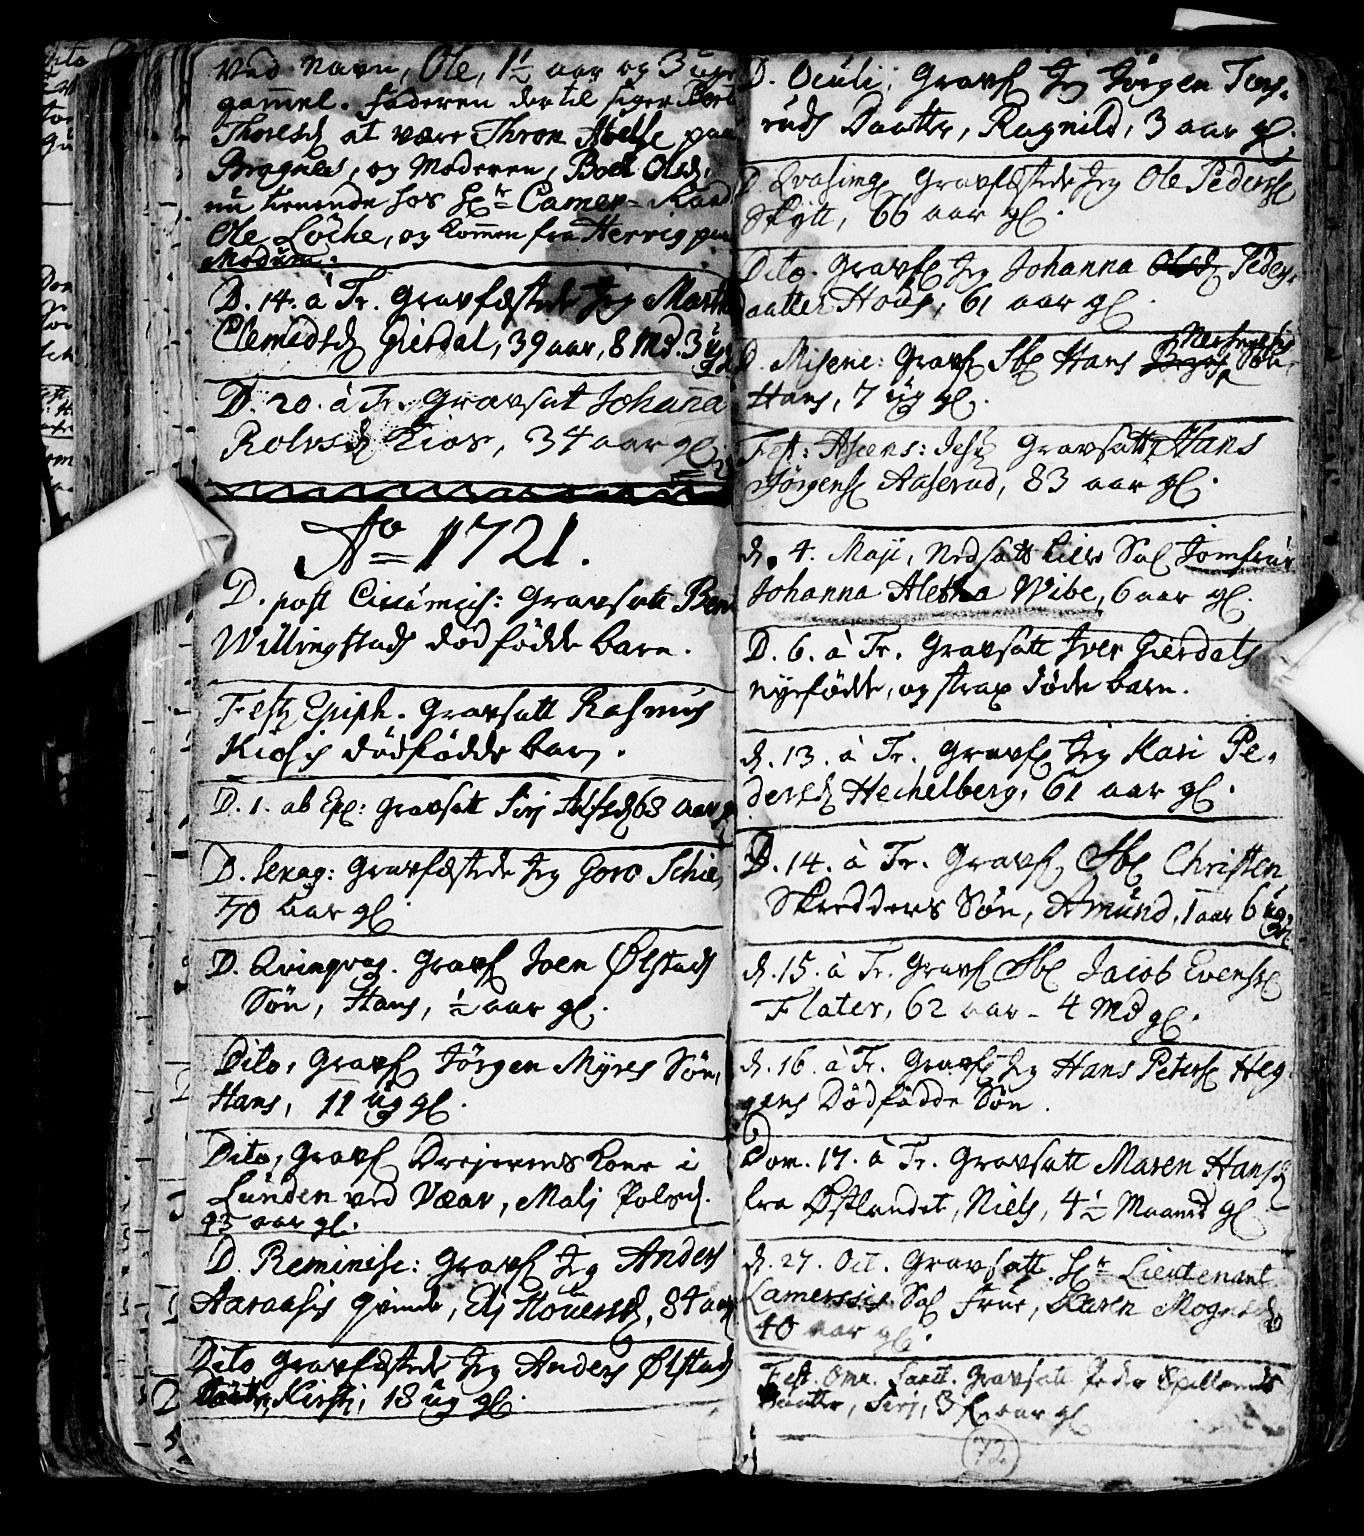 ved Navn, Ole, 1½ aar og 3 uger
gammel. Faderen dertil siges
at være Thron paa
Bragnæs, og Moderen, Boel Olsd.
nu tienende hos Hr Camer-Raad
Ole Löche, og kommen fra Herrig paa
Modum.
D. 14. à Tr. Gravfæstede Jeg
Clemedsd Gierdal, 39 aar, 8 Md. 3 ug
D. 20. à Tr. Gravsat Johana
Rolvsd Kios, 34 aar gl.
Ao 1721.
D. post Circumcis: Gravsatt
Willingstads dödfödde barn.
Fest. Epiph. Gravsatt Rasmus
Kiös dödfödde barn.
D. 1. ab Epi: Gravsatt Sirj 68 aar
D. Sexag: Gravfæstede Jeg Goro
70 aar gl.
D. Qvinqvag. Gravf Joen Ølstads
Sön, Hans, ½ aar gl.
Dito, Gravf Jörgen Myres Sön,
Hans, 11 ug gl.
Dito, Gravf Drejerens kone i
Lunden ved Væar, Malj Polsd.
43 aar gl.
D. Reminisc: Gravf Jeg Anders
Aaraasis qvinde, Elj 84 aar
Dito Gravfæstede Jeg Anders Ølstads
Kirsti, 18 ug gl.
D. Oculi, Gravf Jeg Jörgen
ruds Daatter, Ragnild, 3 aar gl.
D. Qvasimg Gravfæstede Jeg Ole Peders
Skÿtt, 66 aar gl.
Dito. Gravf Jeg Johanna Olsd Peders
daatter 61 aar gl.
D. Miseric: Gravf Hans Sön,
Hans, 7 ug gl.
Fest: Ascens: Jesu Gravsatt Hans
Jörgens Aaserud, 83 aar gl.
d. 4. Maji, Nedsatt Sal Jomfrue
Johanna Aletha Wibe, 6 aar gl.
D. 6. à Tr. Gravsatt Iver Gierdals
nyefödde, og strax döde barn.
d. 13. à Tr. Gravf Jeg Kari Pe-
dersd Hechelberg, 61 aar gl.
D. 14. à Tr. Gravf Christen
Skredders Sön, Amund, 1 aar 6 ug
d. 15. à Tr. Gravf Jacob Evens
Flater, 62 aar - 4 Md gl.
d. 16. à Tr. Gravf Jeg Hans Peters Heg-
gens Dödfödde Sön.
Dom. 17. à Tr. Gravsatt Maren Hansd
fra Østlandet, Niels, 4½ Maaned gl
d. 27. Oct. Gravsatt Hr Lieutenant
Lamerssis Sal frue, Karen Mognsd
40 aar gl.
Fest. Omn. Sanct. Gravsatt Peder
Daatter, Sirj, 3 aar gl
72